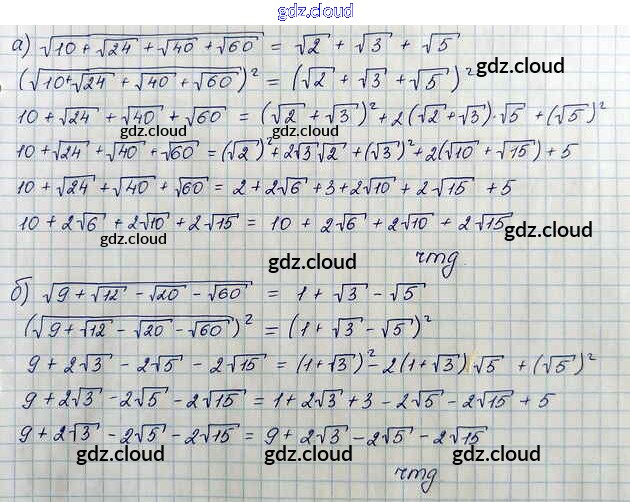 gdz.cloud
а) √(10 + √24 + √40 + √60) = √2 + √3 + √5
(√(10 + √24 + √40 + √60))² = (√2 + √3 + √5)² gdz.cloud
10 + √24 + √40 + √60 = (√2 + √3)² + 2(√2 + √3)·√5 + (√5)²
gdz.cloud gdz.cloud
10 + √24 + √40 + √60 = (√2)² + 2√3√2 + (√3)² + 2(√10 + √15) + 5
gdz.cloud
10 + √24 + √40 + √60 = 2 + 2√6 + 3 + 2√10 + 2√15 + 5
10 + 2√6 + 2√10 + 2√15 = 10 + 2√6 + 2√10 + 2√15
gdz.cloud gdz.cloud
gdz.cloud rmg.
б) √(9 + √12 - √20 - √60) = 1 + √3 - √5
(√(9 + √12 - √20 - √60))² = (1 + √3 - √5)²
gdz.cloud
9 + 2√3 - 2√5 - 2√15 = (1 + √3)² - 2(1 + √3)√5 + (√5)²
gdz.cloud
9 + 2√3 - 2√5 - 2√15 = 1 + 2√3 + 3 - 2√5 - 2√15 + 5
gdz.cloud gdz.cloud
9 + 2√3 - 2√5 - 2√15 = 9 + 2√3 - 2√5 - 2√15
gdz.cloud gdz.cloud gdz.cloud
rmg